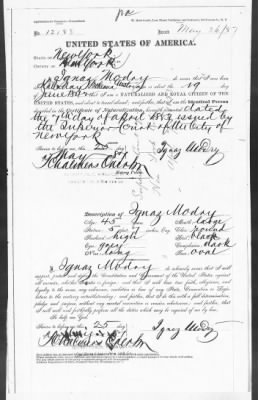 No. 12183 Issued May 26/87
UNITED STATES OF AMERICA.
STATE OF New York
COUNTY OF New York
I, Ignaz Modry do swear that I was born
Bohemia Austria on or about the 19 day of
June 1842; that I am a NATURALIZED AND LOYAL CITIZEN OF THE
UNITED STATES, and about to travel abroad; and further, that I am the Identical Person
described in the Certificate of Naturalization, herewith dated
the 7th day of April 1883 issued by
the Superior Court of the City of
New York
Sworn to before me, this 25 day
of May 1887 Ignaz Modry
Notary Public
Description of Ignaz Modry
Age: 45 Mouth: large
Stature: 5 feet inches, Eng. Chin: round
Forehead: high Hair: black
Eyes: grey Complexion: dark
Nose: long Face: oval
I, Ignaz Modry do solemnly swear that I will
support, protect and defend the Constitution and Government of the United States against
all enemies, whether domestic or foreign; and that I will bear true faith, allegiance,
and loyalty to the same, any ordinance, resolution or law of any State, Convention or Legislature
to the contrary notwithstanding; and further, that I do this with a full determination,
pledge and purpose, without any mental reservation or evasion whatsoever; and further, that
I will well and faithfully perform all the duties which may be required of me by law:
So help me God.
Sworn to before me, this 25 day
of May 1887 Ignaz Modry